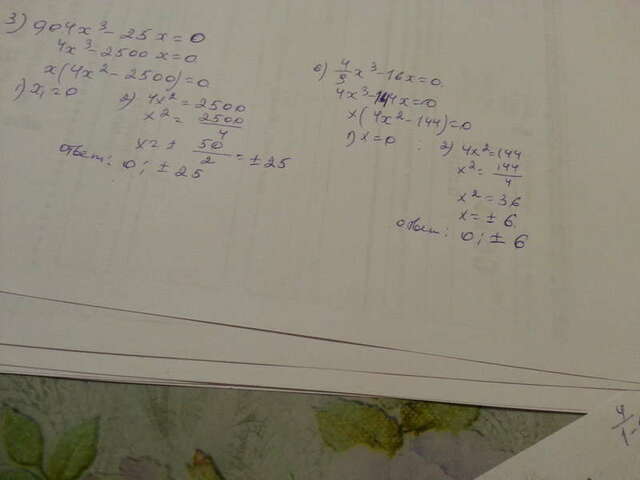 3) 904x³ - 25x = 0
4x³ - 2500x = 0
x(4x² - 2500) = 0
1) x₁ = 0 2) 4x² = 2500
x² = 2500/4
x = ± 50/2 = ± 25
Ответ: 0; ± 25
6) 4/9 x³ - 16x = 0
4x³ - 144x = 0
x(4x² - 144) = 0
1) x = 0 ; 2) 4x² = 144
x² = 144/4
x² = 36
x = ± 6
Ответ: 0; ± 6